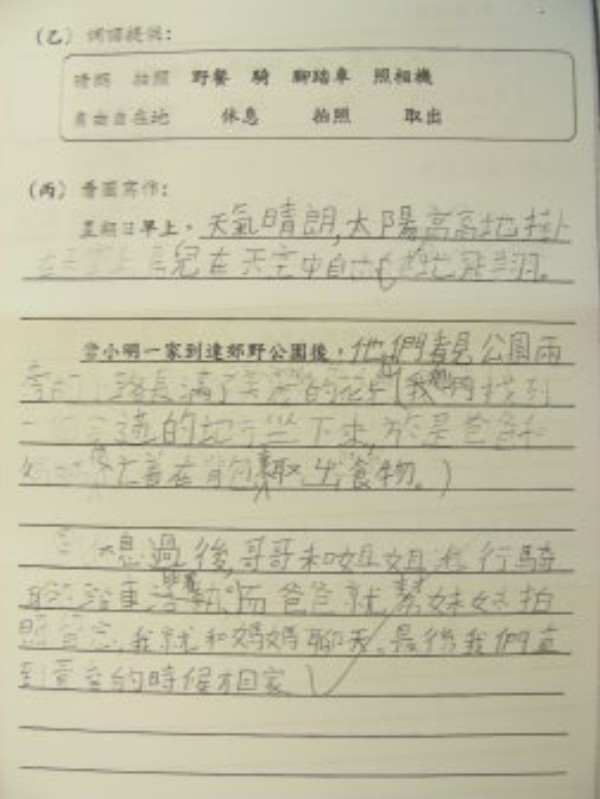 (乙) 詞語提供:
晴朗 拍照 野餐 騎 腳踏車 照相機
自由自在地 休息 拍照 取出
(丙) 看圖寫作:
星期日早上,天氣晴朗,太陽高高地掛
在天空上,鳥兒在天空中自由地飛翔。
當小明一家到達郊野公園後,他們看見公園兩
旁的小路長滿了美麗的花卉,我們找到
一個的地方坐下來,於是爸爸和
媽媽忙着在背包裏取出食物。)
休息過後,哥哥和姐姐進行騎
腳踏車活動,而爸爸就幫妹妹拍
照留念,我就和媽媽聊天。最後我們直
到黃昏的時候才回家